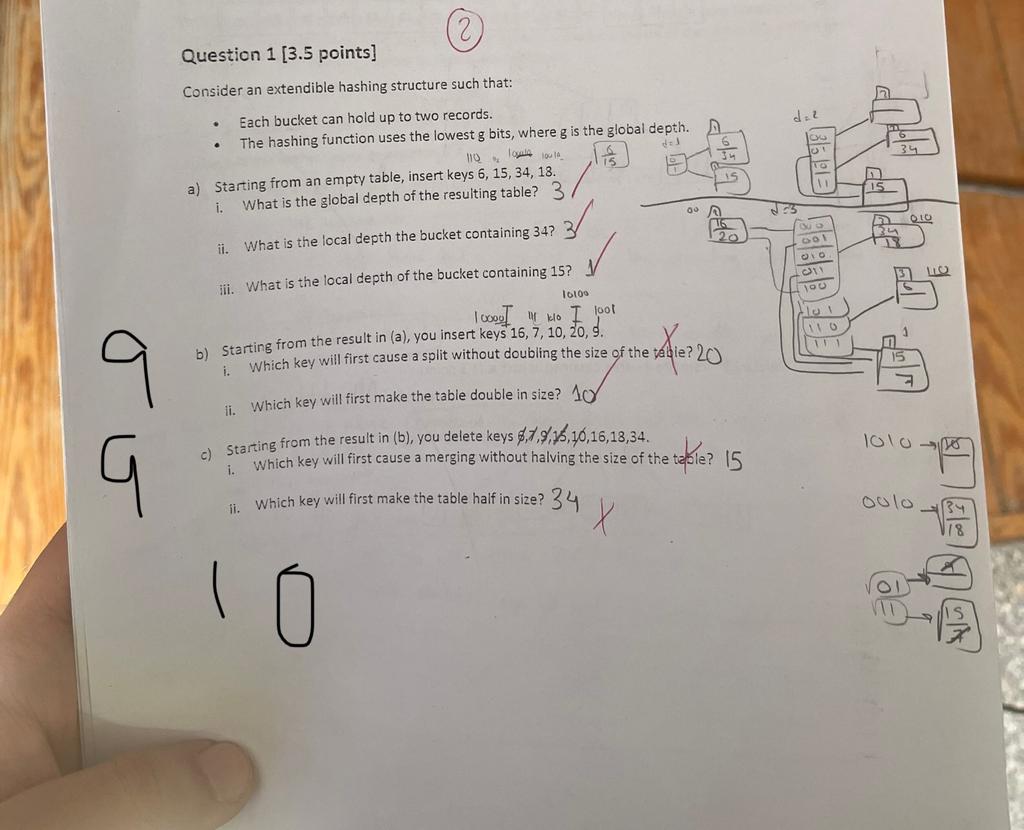 2
Question 1 [3.5 points]
Consider an extendible hashing structure such that:
• Each bucket can hold up to two records.
• The hashing function uses the lowest g bits, where g is the global depth.
110
a) Starting from an empty table, insert keys 6, 15, 34, 18.
i. What is the global depth of the resulting table? 3
ii. What is the local depth the bucket containing 34? 3
iii. What is the local depth of the bucket containing 15? 1
10100
1001
b) Starting from the result in (a), you insert keys 16, 7, 10, 20, 9.
i. Which key will first cause a split without doubling the size of the table? 20
ii. Which key will first make the table double in size? 10
c) Starting from the result in (b), you delete keys 6,7,9,15,10,16,18,34.
i. Which key will first cause a merging without halving the size of the table? 15
ii. Which key will first make the table half in size? 34
9
9
10
6
15
d=1
0
1
6
34
15
d=2
00
01
10
11
6
34
1
15
00
16
20
d=3
001
010
011
100
110
111
34
18
010
3
110
6
1
15
7
1010
10
0010
34
18
01
9
11
15
7